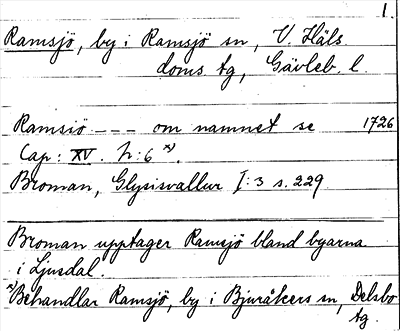 1.
Ramsjö, by i Ramsjö sn, V. Häls.
doms. tg, Gävleb. l.
Ramsiö --- om namnet se 1726
Cap: XV. h: 6 x).
Broman, Glysisvallur I:3 s. 229.
Broman upptager Ramsjö bland byarna
i Ljusdal.
x) Behandlar Ramsjö, by i Bjuråkers sn, Delsbo
tg.